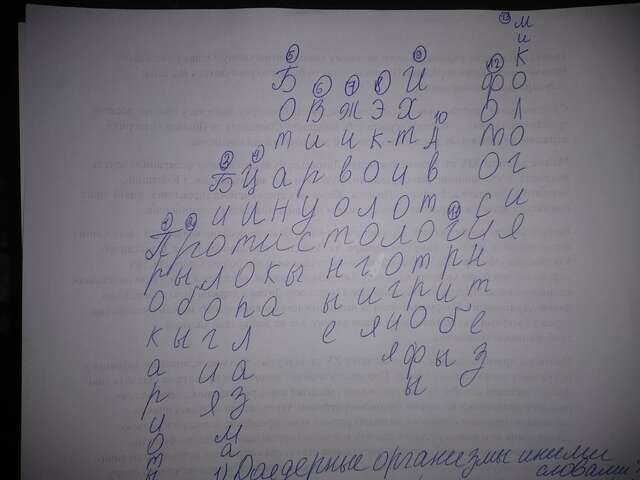 13 М
и
5 9 К
Б 6 7 8 И 12 Ф О
О В Ж Э Х 10 О Л
т и и к т А т О
3 4 Б Ц а р в о и в О Г
и и н у о л о т с и
1 2 11
Протистология
р ы л о к ы н г о т р н
о б о п а ы и г р и т
к ы г л е я и о б е
а и а я ф ы з
р я з ы
и м
о а
1) Доядерные организмы иными
словами: